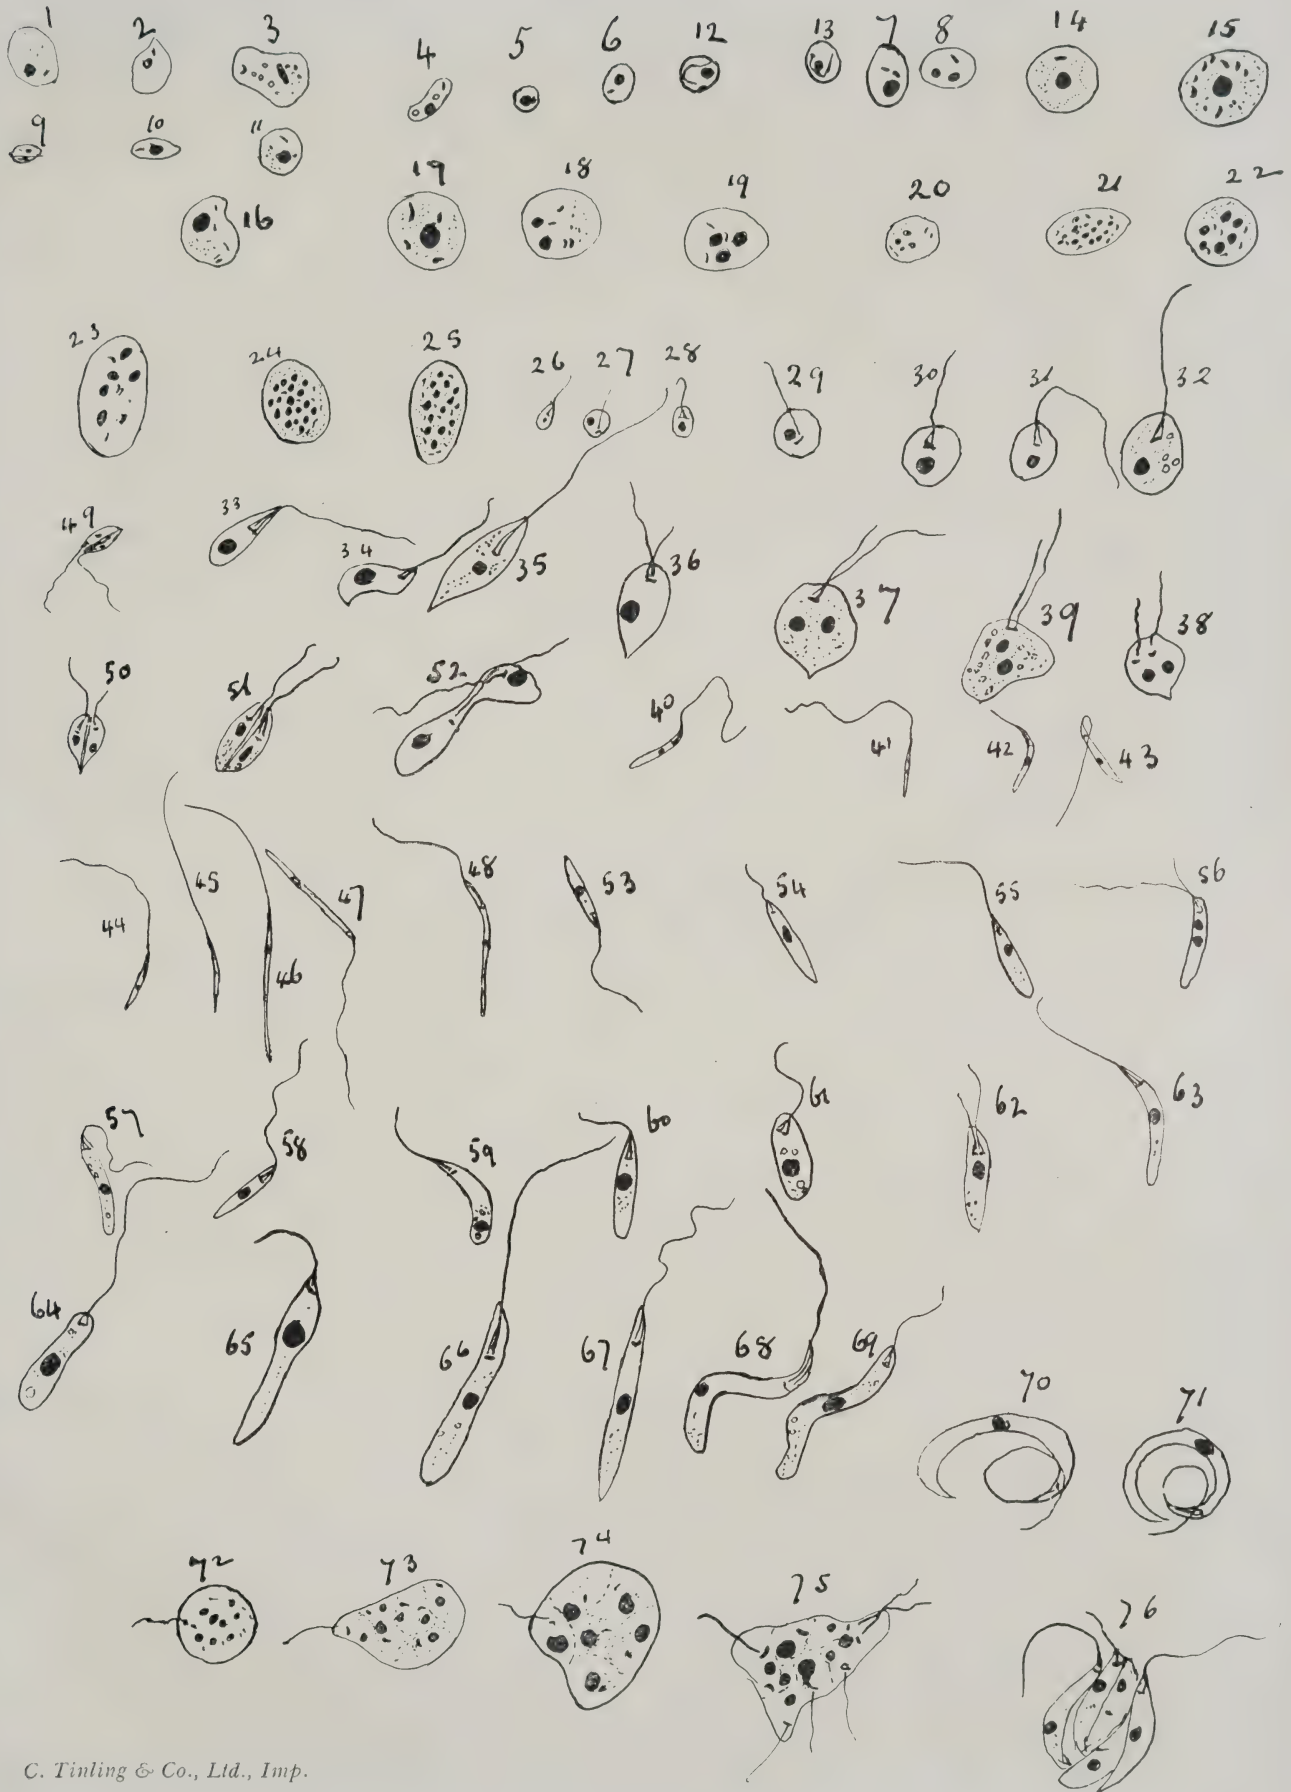 1 2 3 4 5 6 12 13 7 8 14 15
9 10 11
16 19 18 19 20 21 22
23 24 25 26 27 28 29 30 31 32
49 33 34 35 36 37 39 38
50 51 52 40 41 42 43
44 45 46 47 48 53 54 55 56
57 58 59 60 61 62 63
64 65 66 67 68 69 70 71
72 73 74 75 76
C. Tinling & Co., Ltd., Imp.